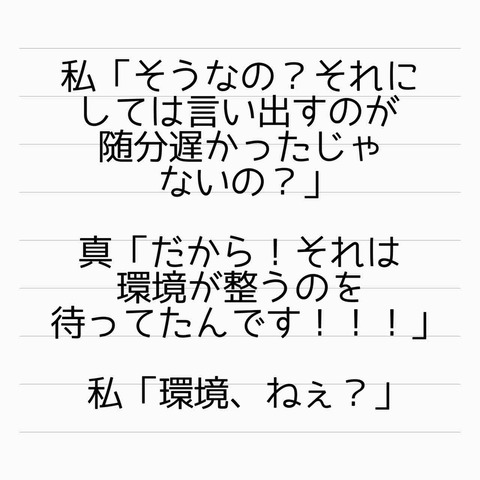 私「そうなの？それに
しては言い出すのが
随分遅かったじゃ
ないの？」
真「だから！それは
環境が整うのを
待ってたんです！！！」
私「環境、ねぇ？」